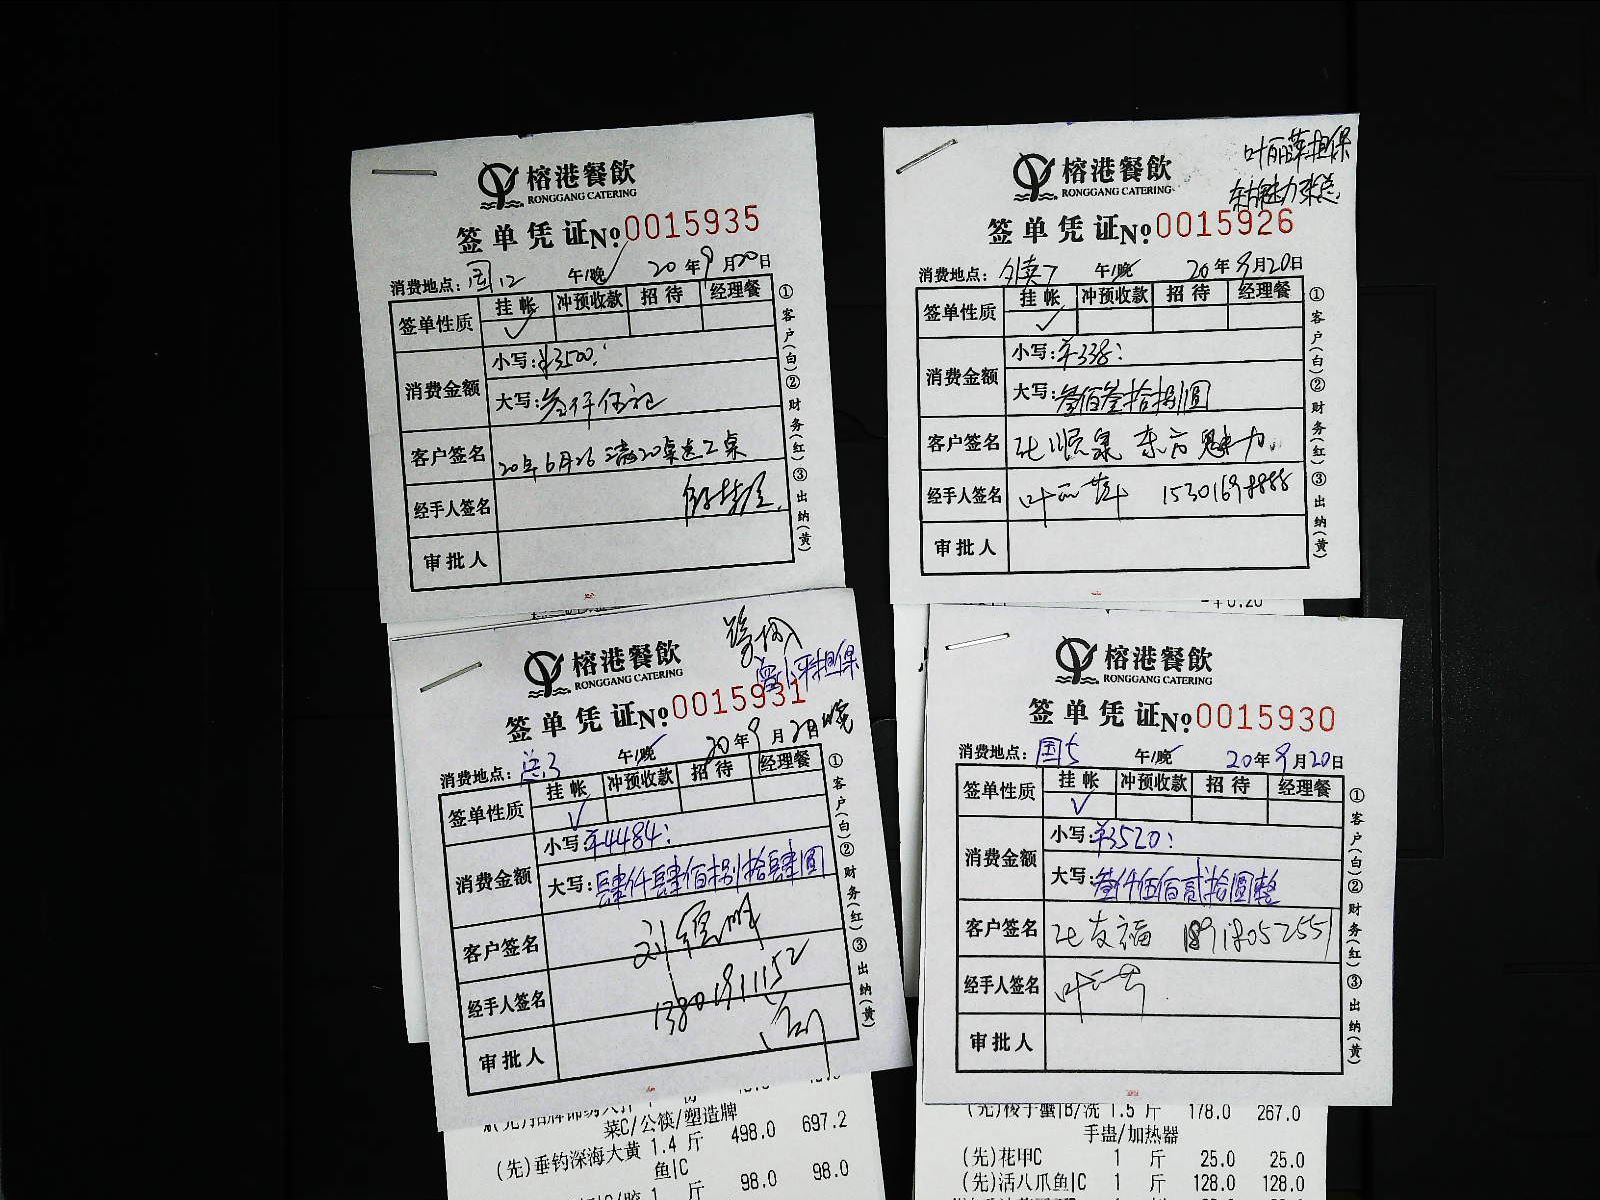 榕港餐飲
RONGGANG CATERING
签单凭证 №0015935
消费地点: 国12 午/晚 20年9月20日
签单性质 挂帐 冲预收款 招待 经理餐
✓
消费金额 小写: ¥3500.
大写: 叁仟伍
客户签名 20年6月26 满20桌送2桌
经手人签名
审批人
①客户(白)②财务(红)③出纳(黄)
叶丽萍担保
东方魅力张总
榕港餐飲
RONGGANG CATERING
签单凭证 №0015926
消费地点: 外卖7 午/晚 20年9月20日
签单性质 挂帐 冲预收款 招待 经理餐
✓
消费金额 小写: ¥338:
大写: 叁佰叁拾捌圆
客户签名 张顺泉 东方魅力
经手人签名 叶丽萍 15301698888
审批人
①客户(白)②财务(红)③出纳(黄)
小平担保
榕港餐飲
RONGGANG CATERING
签单凭证 №0015931
消费地点: 总3 午/晚 20年9月2日 晚
签单性质 挂帐 冲预收款 招待 经理餐
✓
消费金额 小写: ¥4484:
大写: 肆仟肆佰捌拾肆圆
客户签名 刘
经手人签名 13801911152
审批人
①客户(白)②财务(红)③出纳(黄)
菜C/公筷/塑造牌
(先)垂钓深海大黄 1.4 斤 498.0 697.2
鱼|C
1 斤 98.0 98.0
-¥0.20
榕港餐飲
RONGGANG CATERING
签单凭证 №0015930
消费地点: 国5 午/晚 20年9月20日
签单性质 挂帐 冲预收款 招待 经理餐
✓
消费金额 小写: ¥3520:
大写: 叁仟伍佰贰拾圆整
客户签名 张友福 18918052551
经手人签名
审批人
①客户(白)②财务(红)③出纳(黄)
(先)梭子蟹|B/洗 1.5 斤 178.0 267.0
手蛊/加热器
(先)花甲C 1 斤 25.0 25.0
(先)活八爪鱼|C 1 斤 128.0 128.0